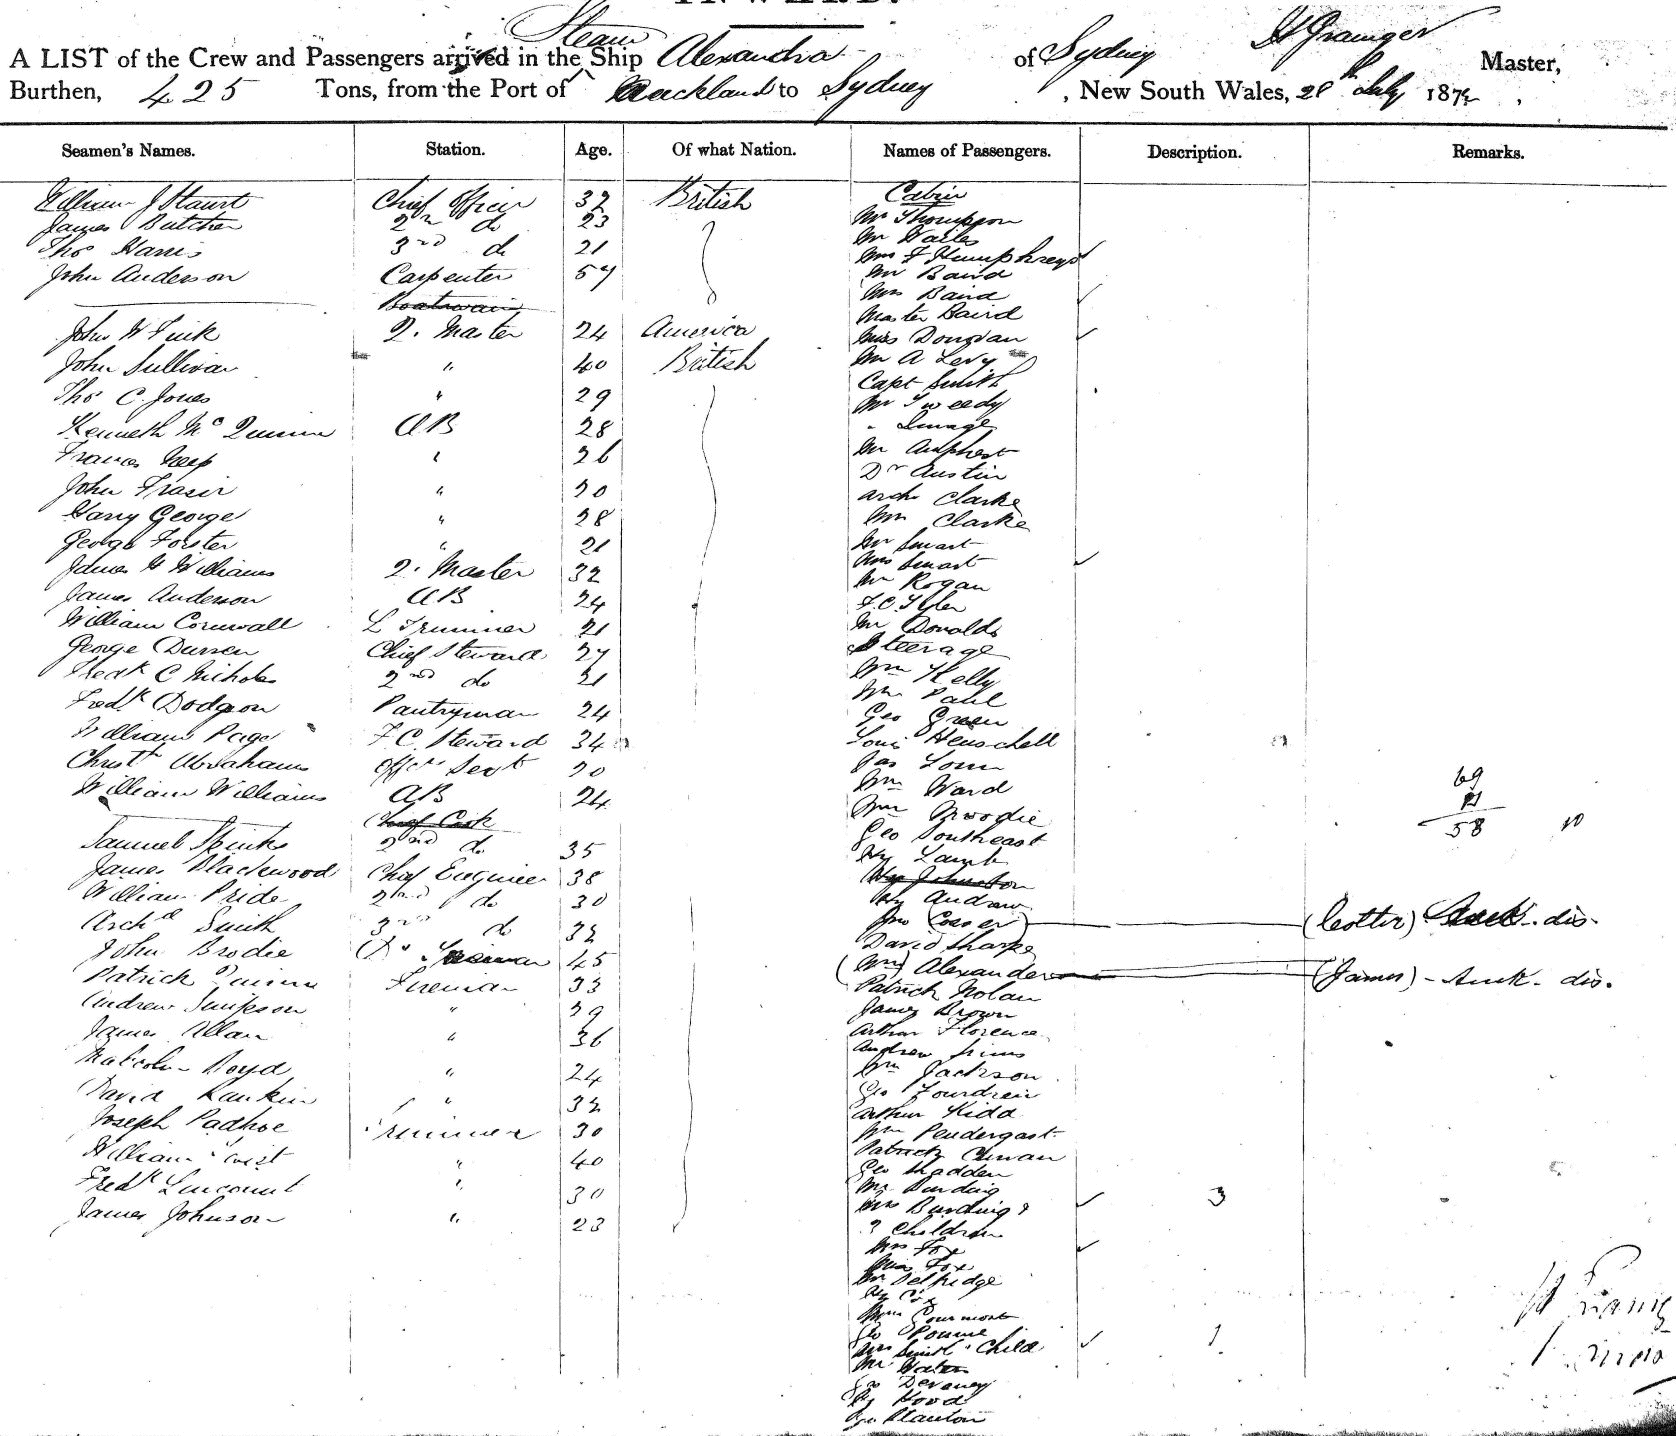 INWARD.
Steam
A LIST of the Crew and Passengers arrived in the Ship Alexandra of Sydney H Grainger Master,
Burthen, 425 Tons, from the Port of Auckland to Sydney, New South Wales, 28th July 187
Seamen's Names. Station. Age. Of what Nation. Names of Passengers. Description. Remarks.
William J Stuart Chief Officer 32 British Cabin
James Butcher 2nd do 23 Mr Thompson
Thos Harris 3rd do 21 Mr Wailes
Mrs F Humphreys
John Anderson Carpenter 57 Mr Baird
Boatswain Mrs Baird
Master Baird
John W Fink Q. Master 24 America Miss Donovan
John Sullivan " 40 British Mr A Levy
Capt Smith
Thos C. Jones " 29 Mr Tweedy
Kenneth McQuinn AB 28 "
Francis " 26 Mr
Dr Austin
John Frasir " 20 Arch Clarke
Harry George " 28 Mrs Clarke
George Forster " 21 Mr Smart
James H Williams Q. Master 32 Mrs Smart
Mr Rogan
James Anderson AB 24 F. C. Tyler
William Cornwall L Trimmer 21 Mr Donalds
George Chief Steward 27 Steerage
Fredk C Nicholes 2nd do 21 Wm Kelly
Fredk Dodgson Pantryman 24 Wm Paul
Geo Green
William Page F. C. Steward 34 Louis Henschell
Christr Abrahams Offrs Servt 20 Jas
William Williams AB 24 Wm Ward
Chief Cook Wm
Samuel Spinks 2nd do 35 Geo Southeast
Hy Lamb
James Blackwood Chief Engineer 38 Johnston
William Pride 2nd do 30 Hy Andrew
Archd Smith 3rd do 32 Jno (Cosser) (Cotter) Auck. dis.
David Sharpe
John Brodie 45 (Wm) Alexander (James) - Auck. dis.
Patrick Quinn Fireman 33 Patrick Nolan
Andrew Simpson " 29 James Brown
James Allan " 36 Arthur Florence
Andrew Simms
Malcolm Boyd " 24 Wm Jackson
David Rankin " 32 Geo Fourdrein
Arthur Kidd
Joseph Padhoe Trimmer 30 Wm Pendergast
William " 40 Patrick
Geo Madden
Fredk " 30 Mr Bunding
Mrs Bunding & 3
James Johnson " 23 3 Children
Mrs Fox
Miss Fox
Mr Selfridge
Hy Cox
Wm
Geo
Mrs Smith & Child 1
Mr
Devaney
Hy Hood
Stanton
69
11
58
10
H Grainger